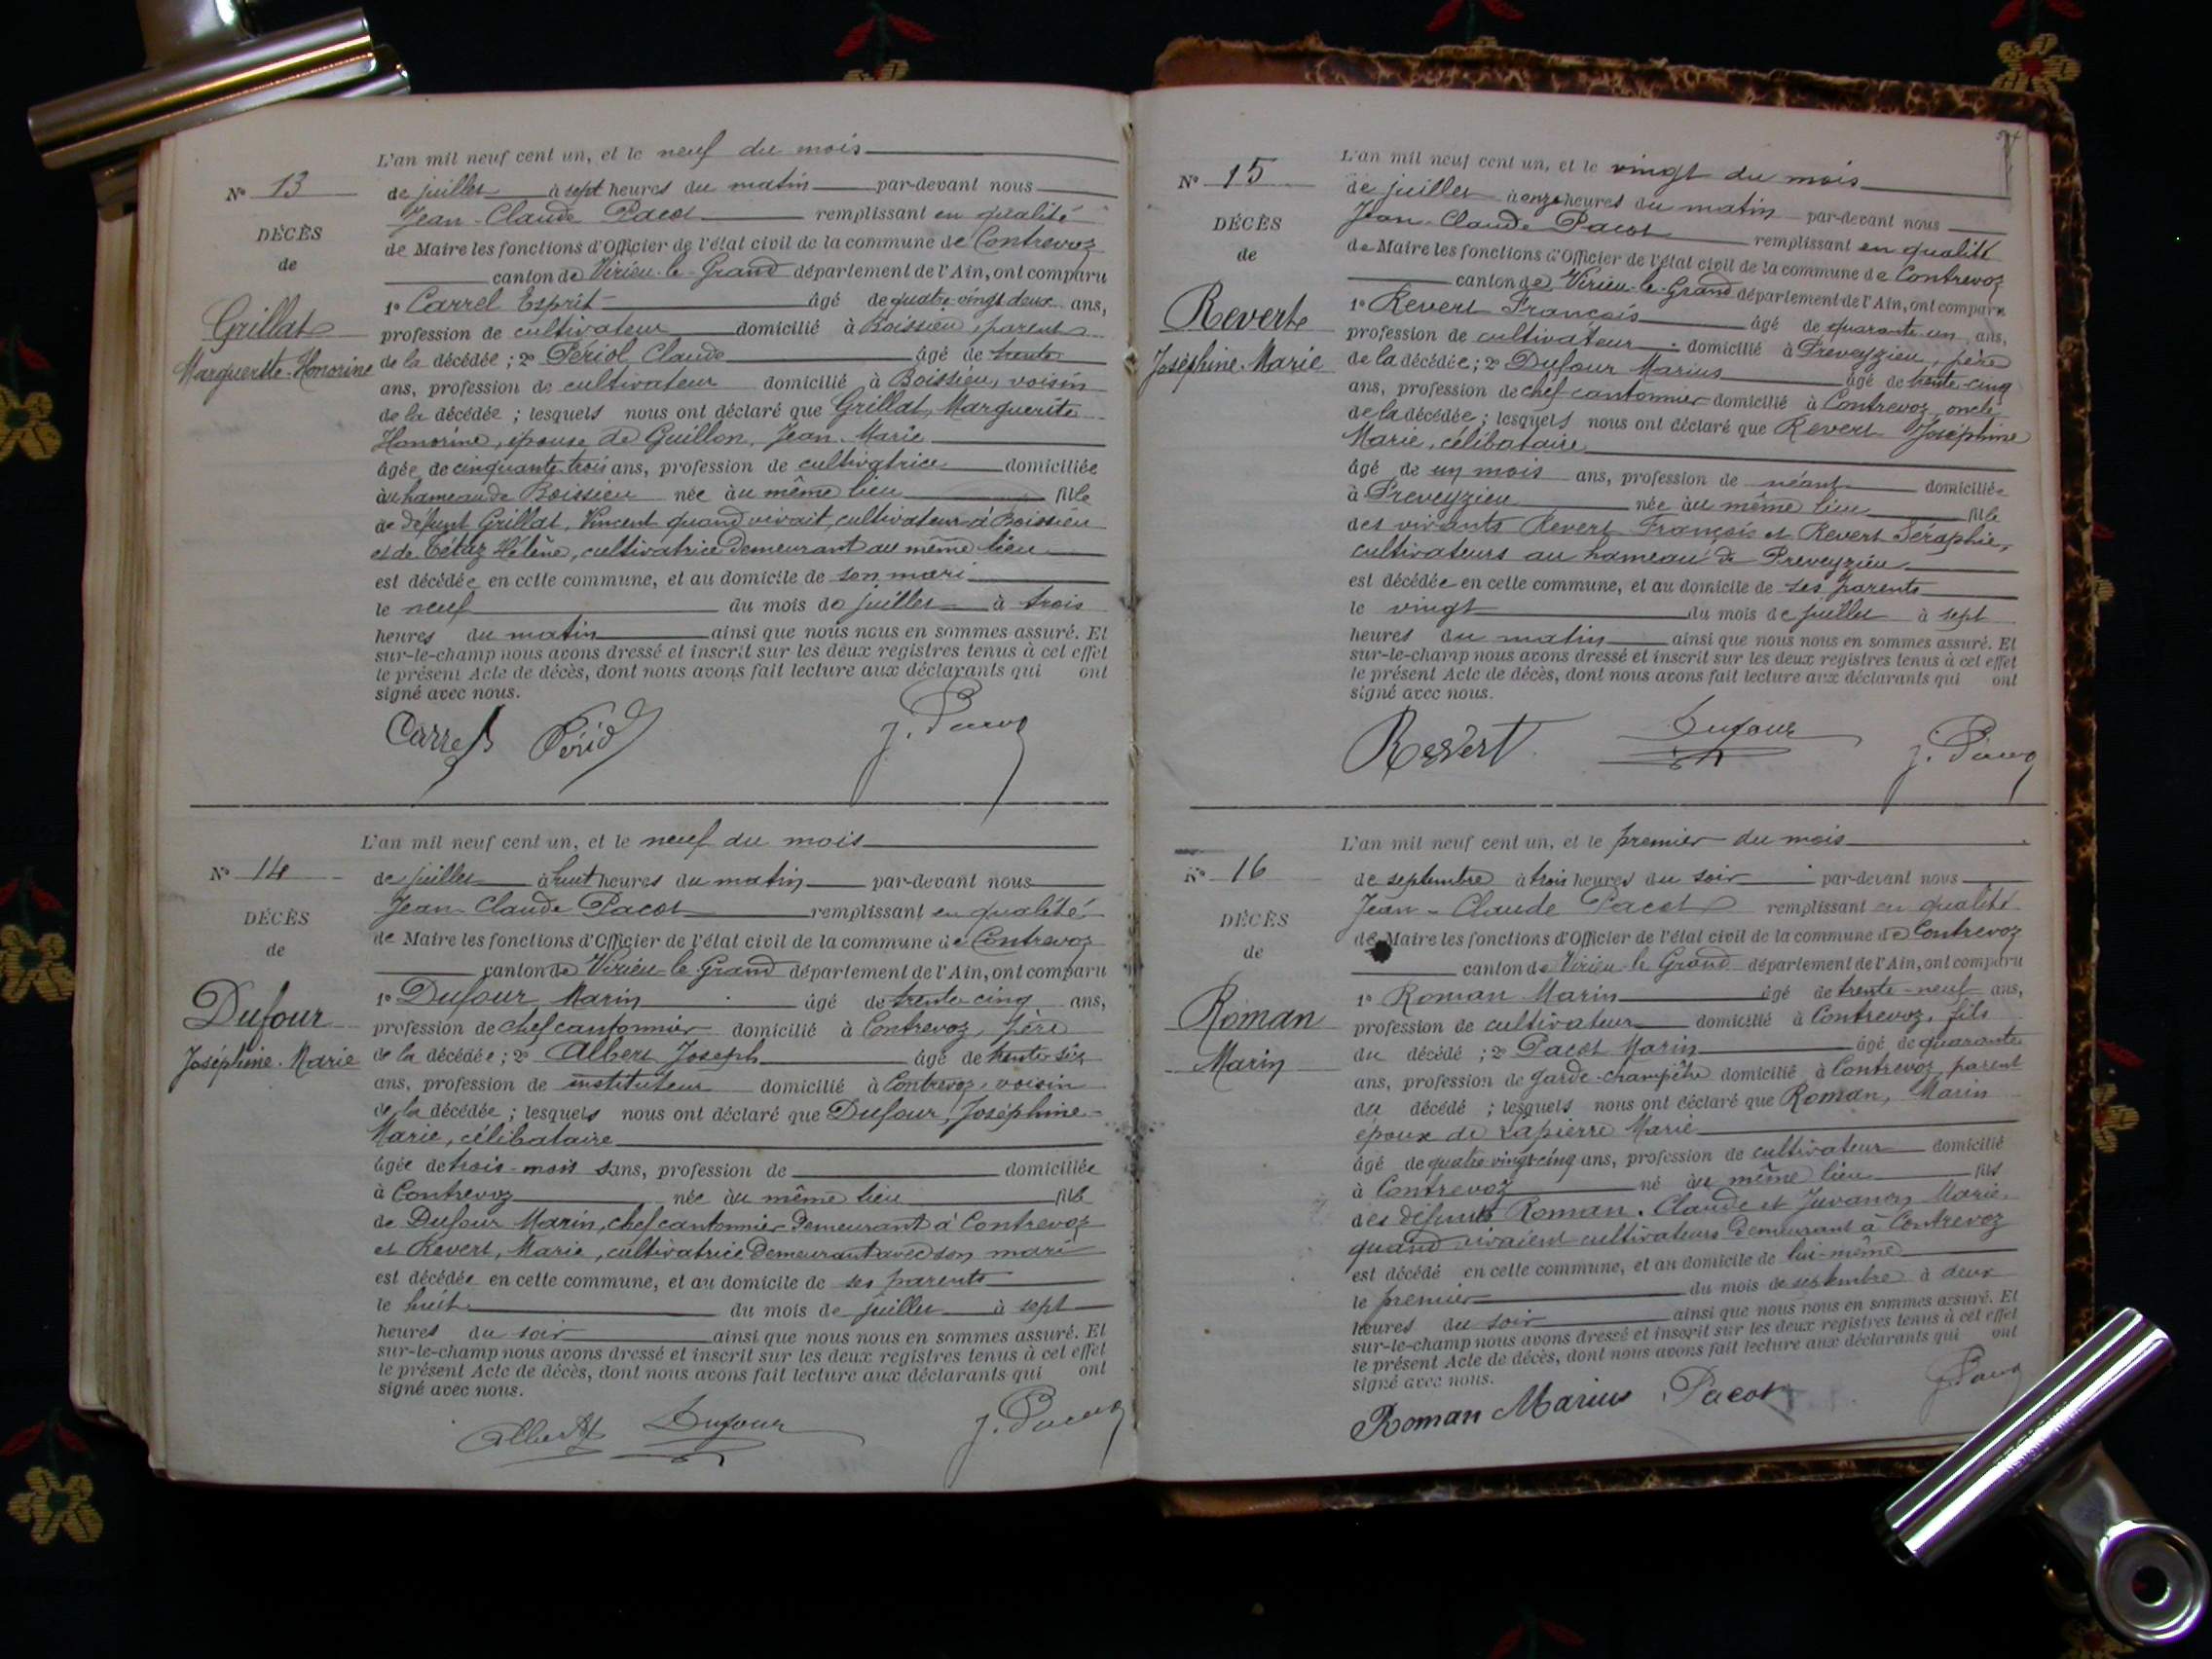 L'an mil neuf cent un, et le neuf du mois
N° 13
de juillet à sept heures du matin par-devant nous
Jean-Claude Pacot remplissant en qualité
DÉCÈS
de Maire les fonctions d'Officier de l'état civil de la commune de Contrevoz
de
canton de Virieu-le-Grand département de l'Ain, ont comparu
1° Carrel Esprit âgé de quatre-vingt-deux ans,
Grillat
profession de cultivateur domicilié à Boissieu, parent
Marguerite-Honorine
de la décédée ; 2° Périol Claude âgé de trente
ans, profession de cultivateur domicilié à Boissieu, voisin
de la décédée ; lesquels nous ont déclaré que Grillat, Marguerite
Honorine, épouse de Guillon, Jean-Marie
âgée de cinquante-trois ans, profession de cultivatrice domiciliée
au hameau de Boissieu née au même lieu fille
de défunt Grillat, Vincent quand vivait cultivateur à Boissieu
et de Tétaz Hélène, cultivatrice demeurant au même lieu
est décédée en cette commune, et au domicile de son mari
le neuf du mois de juillet à trois
heures du matin ainsi que nous nous en sommes assuré. Et
sur-le-champ nous avons dressé et inscrit sur les deux registres tenus à cet effet
le présent Acte de décès, dont nous avons fait lecture aux déclarants qui ont
signé avec nous.
Carrel Périol J. Pacot
L'an mil neuf cent un, et le neuf du mois
N° 14
de juillet à huit heures du matin par-devant nous
Jean-Claude Pacot remplissant en qualité
DÉCÈS
de Maire les fonctions d'Officier de l'état civil de la commune de Contrevoz
de
canton de Virieu-le-Grand département de l'Ain, ont comparu
1° Dufour Marin âgé de trente-cinq ans,
Dufour
profession de chef cantonnier domicilié à Contrevoz, père
Joséphine-Marie
de la décédée ; 2° Albert Joseph âgé de trente-six
ans, profession de instituteur domicilié à Contrevoz, voisin
de la décédée ; lesquels nous ont déclaré que Dufour, Joséphine-
Marie, célibataire
âgée de trois-mois sans, profession de domiciliée
à Contrevoz née au même lieu fille
de Dufour Marin, chef cantonnier demeurant à Contrevoz
et Revert, Marie, cultivatrice demeurant avec son mari
est décédée en cette commune, et au domicile de ses parents
le huit du mois de juillet à sept
heures du soir ainsi que nous nous en sommes assuré. Et
sur-le-champ nous avons dressé et inscrit sur les deux registres tenus à cet effet
le présent Acte de décès, dont nous avons fait lecture aux déclarants qui ont
signé avec nous.
Albert Dufour J. Pacot
L'an mil neuf cent un, et le vingt du mois
N° 15
de juillet à onze heures du matin par-devant nous
Jean-Claude Pacot remplissant en qualité
DÉCÈS
de Maire les fonctions d'Officier de l'état civil de la commune de Contrevoz
de
canton de Virieu-le-Grand département de l'Ain, ont comparu
1° Revert François âgé de quarante-un ans,
Revert
profession de cultivateur domicilié à Preveyzieu, père
Joséphine-Marie
de la décédée ; 2° Dufour Marius âgé de trente-cinq
ans, profession de chef-cantonnier domicilié à Contrevoz, oncle
de la décédée ; lesquels nous ont déclaré que Revert Joséphine
Marie, célibataire
âgé de un mois ans, profession de néant domiciliée
à Preveyzieu née au même lieu fille
des vivants Revert François et Revert Séraphie,
cultivateurs au hameau de Preveyzieu
est décédée en cette commune, et au domicile de ses parents
le vingt du mois de juillet à sept
heures du matin ainsi que nous nous en sommes assuré. Et
sur-le-champ nous avons dressé et inscrit sur les deux registres tenus à cet effet
le présent Acte de décès, dont nous avons fait lecture aux déclarants qui ont
signé avec nous.
Revert Dufour J. Pacot
L'an mil neuf cent un, et le premier du mois
N° 16
de septembre à trois heures du soir par-devant nous
Jean-Claude Pacot remplissant en qualité
DÉCÈS
de Maire les fonctions d'Officier de l'état civil de la commune de Contrevoz
de
canton de Virieu-le-Grand département de l'Ain, ont comparu
1° Roman Marin âgé de trente-neuf ans,
Roman
profession de cultivateur domicilié à Contrevoz, fils
Marin
du décédé ; 2° Pacot Marin âgé de quarante
ans, profession de garde-champêtre domicilié à Contrevoz, parent
du décédé ; lesquels nous ont déclaré que Roman, Marin
époux de Lapierre Marie
âgé de quatre-vingt-cinq ans, profession de cultivateur domicilié
à Contrevoz né au même lieu fils
des défunts Roman, Claude et Juvanon Marie,
quand vivaient cultivateurs demeurant à Contrevoz
est décédé en cette commune, et au domicile de lui-même
le premier du mois de septembre à deux
heures du soir ainsi que nous nous en sommes assuré. Et
sur-le-champ nous avons dressé et inscrit sur les deux registres tenus à cet effet
le présent Acte de décès, dont nous avons fait lecture aux déclarants qui ont
signé avec nous.
Roman Marius Pacot J. Pacot